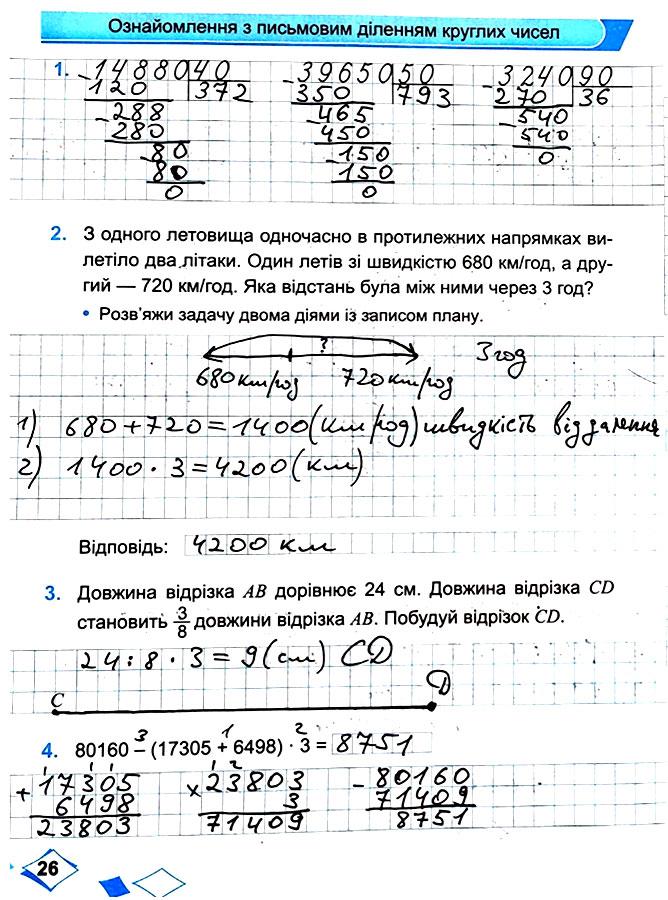 Ознайомлення з письмовим діленням круглих чисел
1. -14880 40 -39650 50 -3240 90
120 372 350 793 270 36
-288 -465 -540
280 450 540
-80 -150 0
80 150
0 0
2. З одного летовища одночасно в протилежних напрямках ви-
летіло два літаки. Один летів зі швидкістю 680 км/год, а дру-
гий — 720 км/год. Яка відстань була між ними через 3 год?
• Розв'яжи задачу двома діями із записом плану.
? 3 год
680 км/год 720 км/год
1) 680 + 720 = 1400 (км/год) швидкість віддалення
2) 1400 · 3 = 4200 (км)
Відповідь: 4200 км
3. Довжина відрізка AB дорівнює 24 см. Довжина відрізка CD
становить 3/8 довжини відрізка AB. Побудуй відрізок CD.
24 : 8 · 3 = 9 (см) CD
C D
3 1 2
4. 80160 – (17305 + 6498) · 3 = 8751
1 1 1 1 2
+17305 ×23803 -80160
6498 3 71409
23803 71409 8751
26